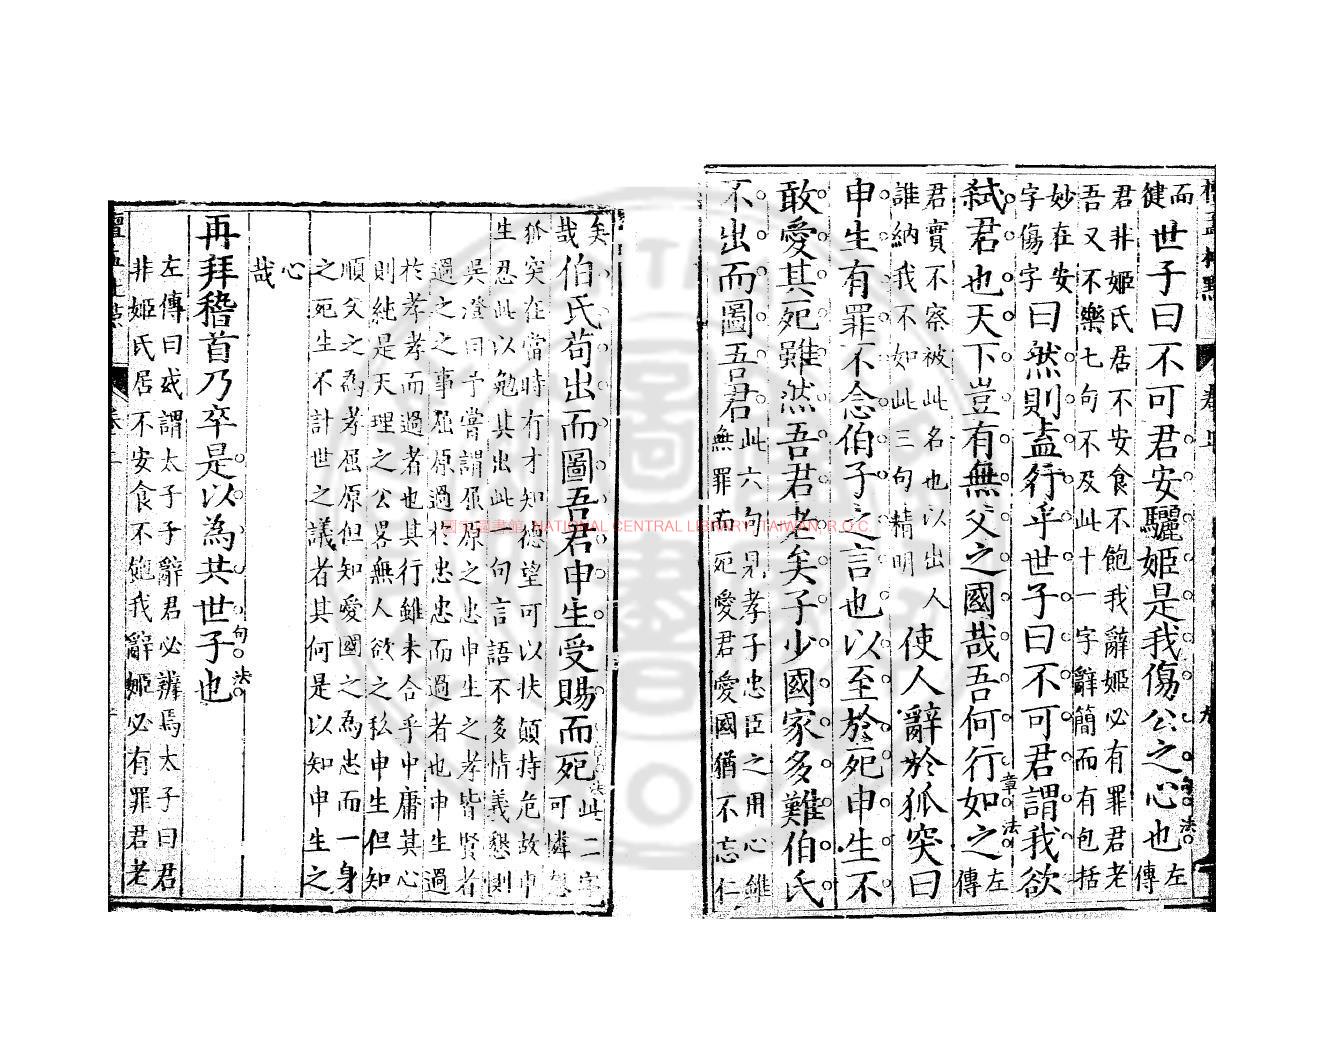 而
健
世子曰不可君安驪姬是我傷公之心也
句法
左
傳
君非姬氏居不安食不飽我辭姬必有罪君老
吾又不樂七句不及此十一字辭簡而有包括
妙在安
字傷字
曰然則盍行乎世子曰不可君謂我欲
弒君也天下豈有無父之國哉吾何行如之
章法
左
傳
君實不察被此名也以出人
誰納我不如此三句精明
使人辭於狐突曰
申生有罪不念伯子之言也以至於死申生不
敢愛其死雖然吾君老矣子少國家多難伯氏
不出而圖吾君
此六句見孝子忠臣之用心雖
無罪而死愛君愛國猶不忘仁
矣
哉
伯氏苟出而圖吾君申生受賜而死
此二字
可憐
狐突在當時有才知德望可以扶顛持危故申
生忍此以勉其出此一句言語不多情義懇惻
吳澄曰予嘗謂屈原之忠申生之孝皆賢者
過之之事屈原過於忠忠而過者也申生過
於孝孝而過者也其行雖未合乎中庸其心
則純是天理之公畧無人欲之私申生但知
順父之為孝屈原但知愛國之為忠而一身
之死生不計世之議者其何是以知申生之
心
哉
再拜稽首乃卒是以為共世子也
句法
左傳曰或謂太子子辭君必辨焉太子曰君
非姬氏居不安食不飽我辭姬必有罪君老
國家圖書館 NATIONAL CENTRAL LIBRARY, TAIWAN, R.O.C